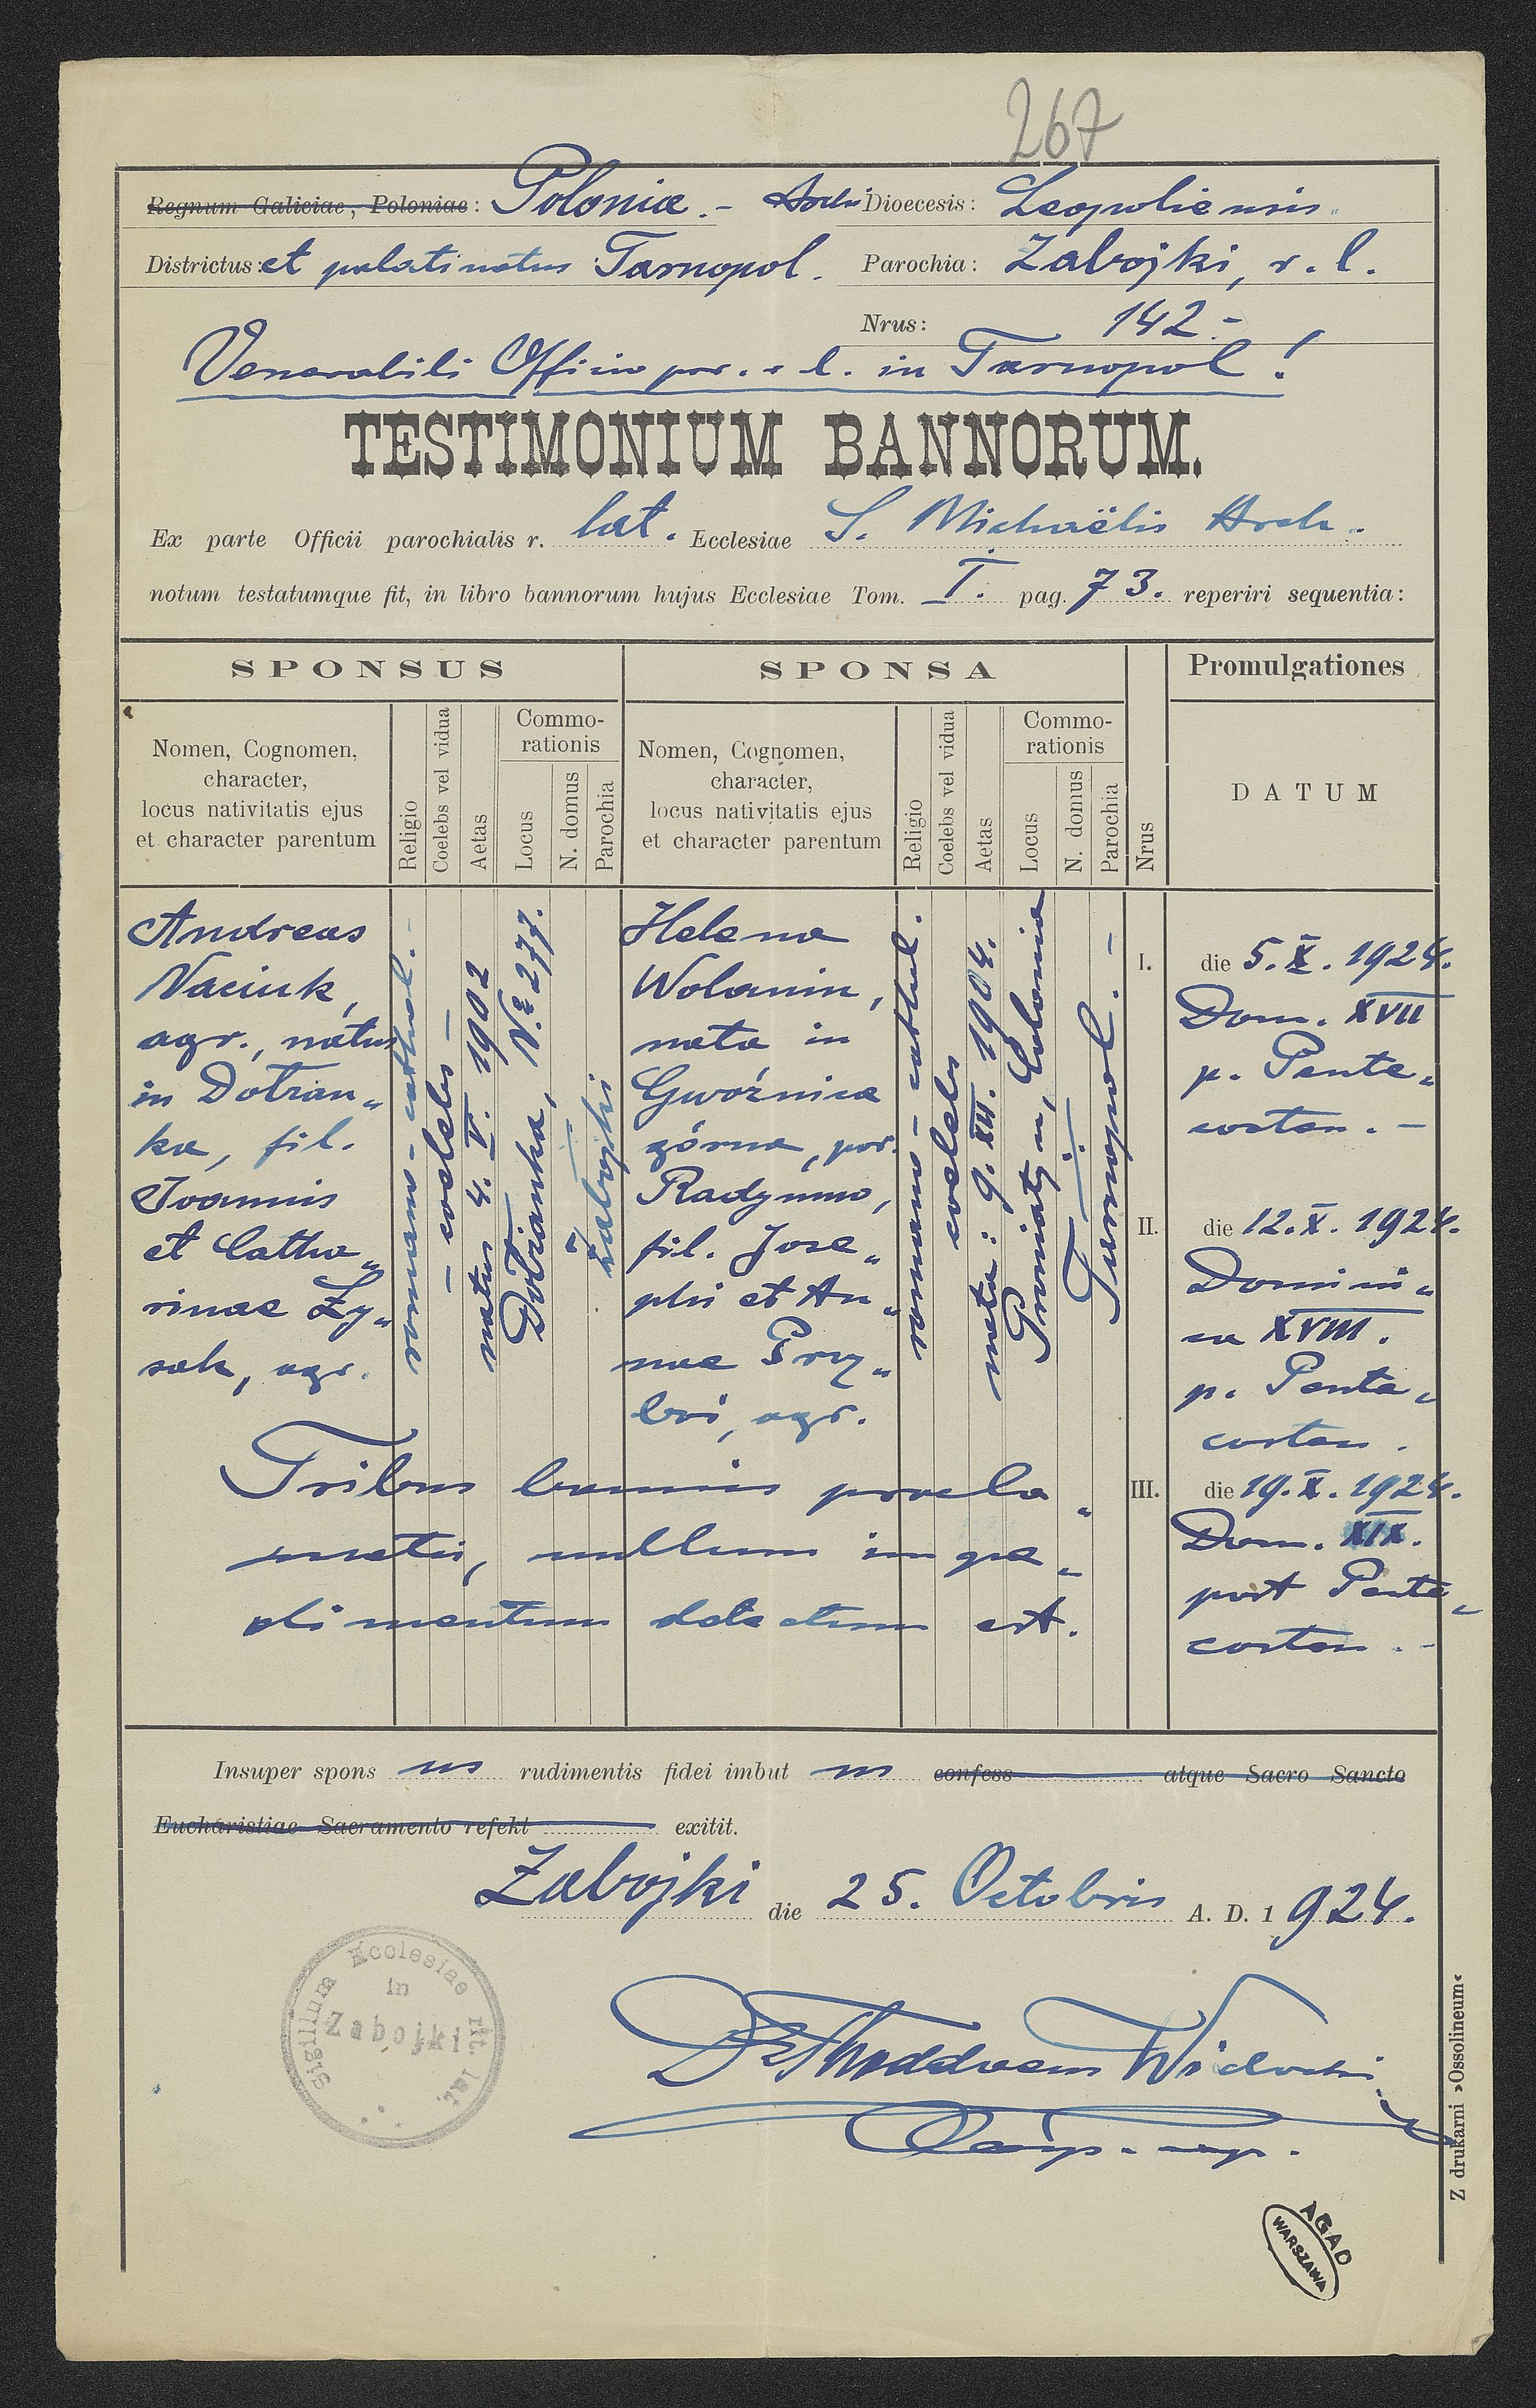 267
Regnum Galiciae, Poloniae: Polonia.- Archi Dioecesis: Leopoliensis.
Districtus: et palatinatus Tarnopol. Parochia: Zabojki, r. l.
Nrus: 142-
Venerabili Officio par. r. l. in Tarnopol!
TESTIMONIUM BANNORUM.
Ex parte Officii parochialis r. lat. Ecclesiae S. Michaëlis Arch.
notum testatumque fit, in libro bannorum hujus Ecclesiae Tom. I. pag. 73. reperiri sequentia:
SPONSUS
Nomen, Cognomen,
character,
locus nativitatis ejus
et character parentum
Religio
Coelebs vel vidua
Aetas
Commo-
rationis
Locus
N. domus
Parochia
SPONSA
Nomen, Cognomen,
character,
locus nativitatis ejus
et character parentum
Religio
Coelebs vel vidua
Aetas
Commo-
rationis
Locus
N. domus
Parochia
Nrus
Promulgationes
DATUM
Andreas
Naciuk,
agr., natus
in Dotran„
ka, fil.
Joannis
et Catha„
rinae Zy„
sak, agr.
romano-cathol.-
- coelebs -
natus 4. V. 1902
Dotranka, № 277.
Zabojki
Helena
Wolanin,
nata in
Gwoźnica
górna, par.
Radymno,
fil. Jose„
phi et An„
nae Przy„
boś, agr.
romano-cathol.
coelebs
nata: 9. XII. 1904.
Proniatyn, Colonia
Tarnopol.-
I. die 5. X. 1924.
Dom. XVII
p. Pente„
costen.-
II. die 12. X. 1924.
Domini„
ca XVIII.
p. Pente„
costen.
III. die 19. X. 1924.
Dom. XIX.
post Pente„
costen.-
Tribus bannis procla„
matis, nullum impe„
dimentum detectum est.
Insuper spons us rudimentis fidei imbut us confess atque Sacro Sancto
Eucharistiae Sacramento refekt exitit.
Zabojki die 25. Octobris A. D. 1924.
Sigillum Ecclesiae rit. lat.
in
Zabojki
Dr Thaddaeus
Z drukarni »Ossolineum«
AGAD
WARSZAWA